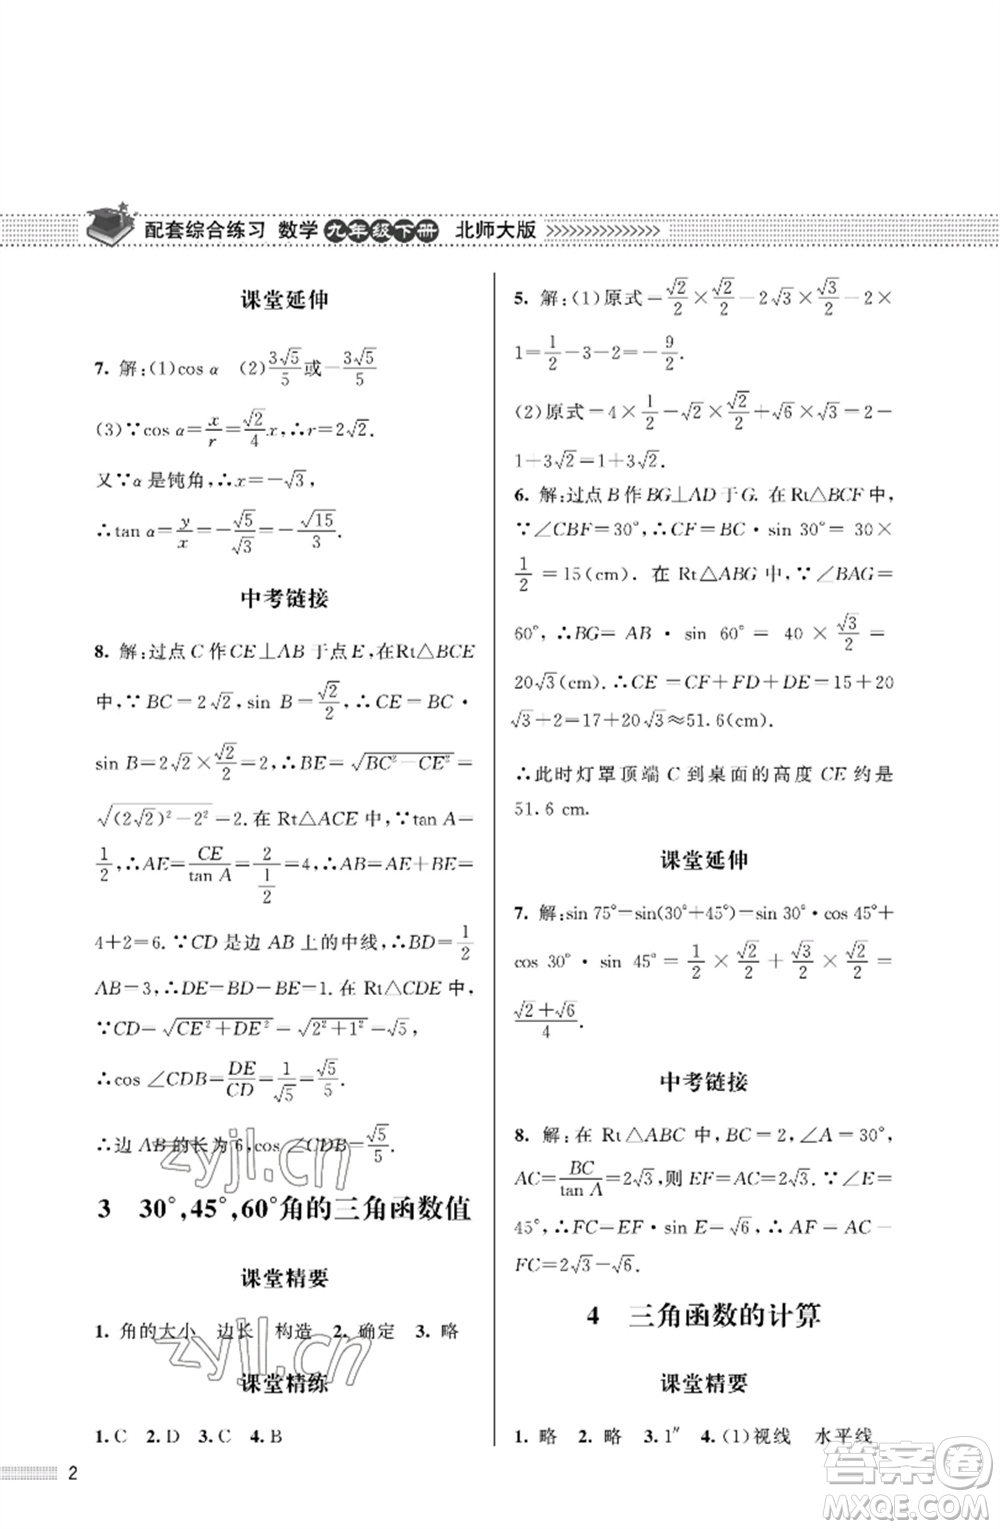 配套综合练习 数学 九年级下册 北师大版
课堂延伸
7. 解:(1)cos α (2)3√5/5或-3√5/5
(3)∵cos α=x/r=√2/4 x,∴r=2√2.
又∵α是钝角,∴x=-√3,
∴tan α=y/x=-√5/√3=-√15/3.
中考链接
8. 解:过点C作CE⊥AB于点E,在Rt△BCE
中,∵BC=2√2,sin B=√2/2,∴CE=BC·
sin B=2√2×√2/2=2,∴BE=√(BC²-CE²)=
√((2√2)²-2²)=2.在Rt△ACE中,∵tan A=
1/2,∴AE=CE/tan A=2/(1/2)=4,∴AB=AE+BE=
4+2=6.∵CD是边AB上的中线,∴BD=1/2
AB=3,∴DE=BD-BE=1.在Rt△CDE中,
∵CD=√(CE²+DE²)=√(2²+1²)=√5,
∴cos ∠CDB=DE/CD=1/√5=√5/5.
∴边AB的长为6,cos ∠CDB=√5/5.
3 30°,45°,60°角的三角函数值
课堂精要
1. 角的大小 边长 构造 2. 确定 3. 略
课堂精练
1. C 2. D 3. C 4. B
2
5. 解:(1)原式=√2/2×√2/2-2√3×√3/2-2×
1=1/2-3-2=-9/2.
(2)原式=4×1/2-√2×√2/2+√6×√3=2-
1+3√2=1+3√2.
6. 解:过点B作BG⊥AD于G.在Rt△BCF中,
∵∠CBF=30°,∴CF=BC·sin 30°=30×
1/2=15(cm).在Rt△ABG中,∵∠BAG=
60°,∴BG=AB·sin 60°=40×√3/2=
20√3(cm).∴CE=CF+FD+DE=15+20
√3+2=17+20√3≈51.6(cm).
∴此时灯罩顶端C到桌面的高度CE约是
51.6 cm.
课堂延伸
7. 解:sin 75°=sin(30°+45°)=sin 30°·cos 45°+
cos 30°·sin 45°=1/2×√2/2+√3/2×√2/2=
(√2+√6)/4.
中考链接
8. 解:在Rt△ABC中,BC=2,∠A=30°,
AC=BC/tan A=2√3,则EF=AC=2√3,∵∠E=
45°,∴FC=EF·sin E=√6,∴AF=AC-
FC=2√3-√6.
4 三角函数的计算
课堂精要
1. 略 2. 略 3. 1″ 4. (1)视线 水平线
zyjl.cn
zyjl.cn
答案圈
MXQE.COM